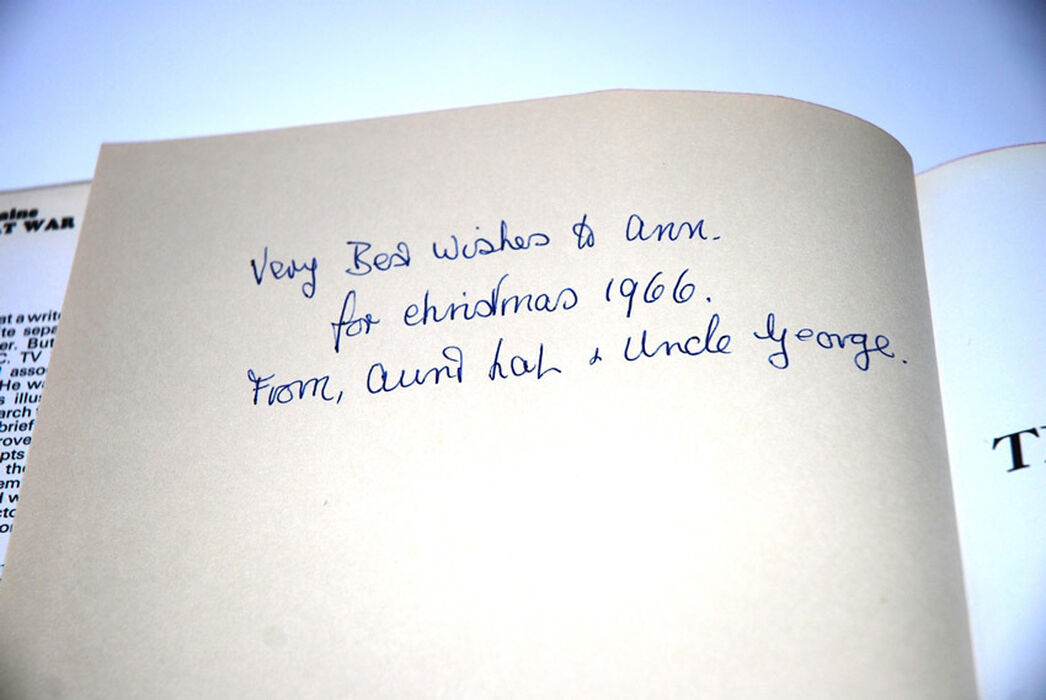 aine
T WAR
at a writ
te sepa
er. But
C. TV
asso
He wa
s illus
arch
brief
rove
pts
the
em
d w
cto
or
Very Best Wishes to Ann.
for christmas 1966.
From, Aunt & Uncle George.
T